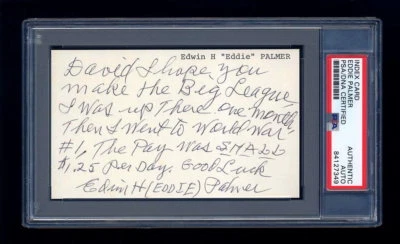 Edwin H "Eddie" PALMER
David I hope you
make the Big League,
I was up There one month,
Then I went to World War
#1, The Pay was SMALL
$1.25 Per Day. GOOD Luck
Edwin H (EDDIE) Palmer
INDEX CARD
EDDIE PALMER
PSA/DNA CERTIFIED
PSA
AUTHENTIC
AUTO
84127349